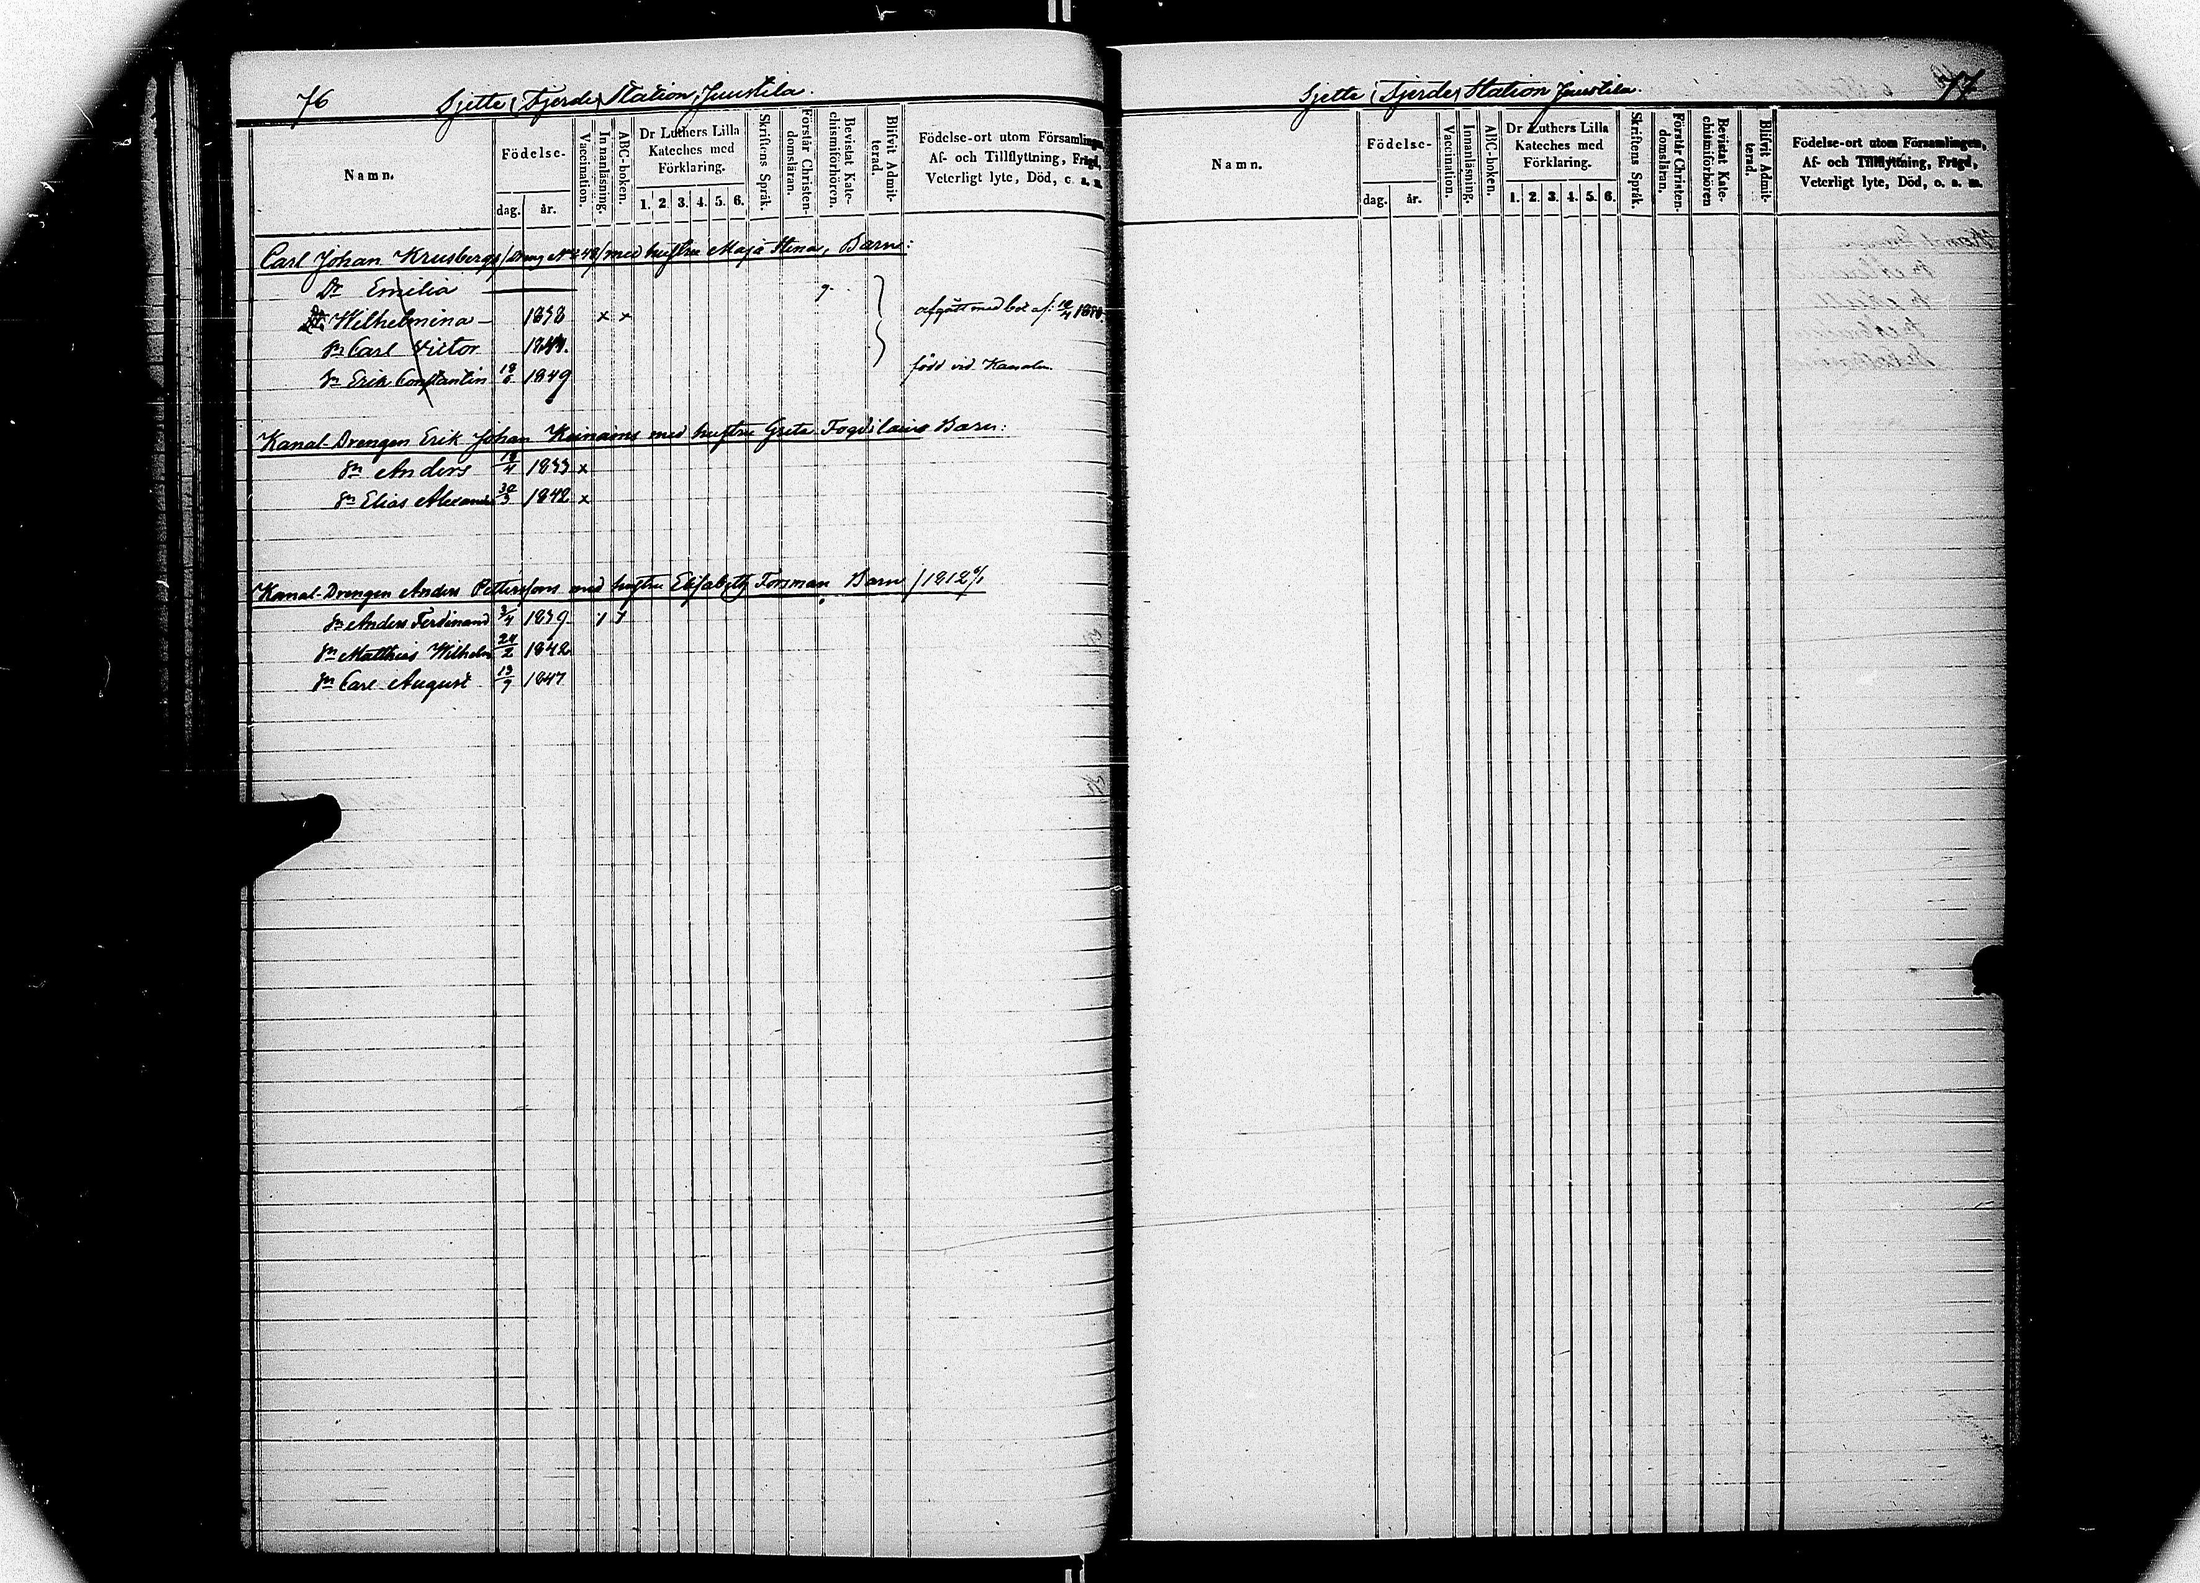 76
Sjette (Fjerde) Station, Juustila.
Namn.
Födelse-
dag.
år.
Vaccination.
Innanläsning.
ABC-boken.
Dr Luthers Lilla
Kateches med
Förklaring.
1. 2. 3. 4. 5. 6.
Skriftens Språk.
Förstår Christen-
domsläran.
Bevistat Kate-
chismiförhören.
Blifvit Admit-
terad.
Födelse-ort utom Församlingen,
Af- och Tillflyttning, Frägd,
Veterligt lyte, Död, o. s. m.
Carl Johan Krusbergs / med hustru Maja Stina, Barn:
Dr Emilia
Dr Wilhelmina 1838 x x afgått med bet. af
Sn Carl Victor 1844.
Sn Erik Constantin 1849 född vid Kanalen
Kanal-Drengen Erik Johan Keinäins med hustru Greta Barn:
Sn Anders 18/4 1833 x
Sn Elias Alexander 30/3 1842 x
Kanal-Drengen Anders Petterssons med hustru Elisabeth Forsman Barn /1812
Sn Anders Ferdinand 3/4 1839
Sn Matthias Wilhelm 24/2 1842
Sn Carl August 13/9 1847
77
Sjette (Fjerde) Station Juustila.
Namn.
Födelse-
dag.
år.
Vaccination.
Innanläsning.
ABC-boken.
Dr Luthers Lilla
Kateches med
Förklaring.
1. 2. 3. 4. 5. 6.
Skriftens Språk.
Förstår Christen-
domsläran.
Bevistat Kate-
chismiförhören
Blifvit Admit-
terad.
Födelse-ort utom Församlingen,
Af- och Tillflyttning, Frägd,
Veterligt lyte, Död, o. s. m.